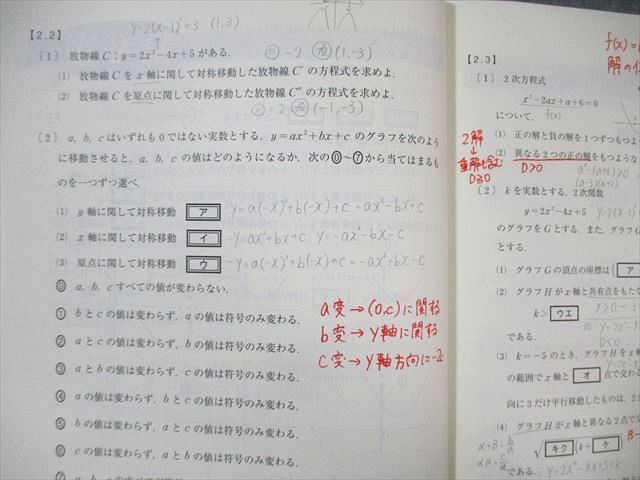 【2.2】
y=2(x-1)²+3 (1,3)
〔1〕 放物線C：y=2x²-4x+5がある．
(1) 放物線Cをx軸に関して対称移動した放物線C′の方程式を求めよ．
(2) 放物線Cを原点に関して対称移動した放物線C″の方程式を求めよ．
〔2〕 a，b，cはいずれも0ではない実数とする．y=ax²+bx+c のグラフを次のよう
に移動させると，a，b，cの値はどのようになるか．次の⓪〜⑦から当てはまるも
のを一つずつ選べ．
(1) y軸に関して対称移動 ア y=a(-x)²+b(-x)+c=ax²-bx+c
(2) x軸に関して対称移動 イ -y=ax²+bx+c y=-ax²-bx-c
(3) 原点に関して対称移動 ウ -y=a(-x)²+b(-x)+c=-ax²+bx-c
⓪ a，b，cすべての値が変わらない．
① bとcの値は変わらず，aの値は符号のみ変わる．
② aとcの値は変わらず，bの値は符号のみ変わる．
③ aとbの値は変わらず，cの値は符号のみ変わる．
④ aの値は変わらず，bとcの値は符号のみ変わる．
⑤ bの値は変わらず，aとcの値は符号のみ変わる．
⑥ cの値は変わらず，aとbの値は符号のみ変わる．
a変→(0,c)に関する
b変→y軸に関する
c変→y軸方向に-2c
【2.3】
f(x)=
解の
〔1〕 2次方程式
x²-2ax+a+6=0
について， f(x)
(1) 正の解と負の解を1つずつもつよ
(2) 異なる2つの正の解をもつような
2解
↓
重解も含む
D≧0
D>0
〔2〕 kを実数とする．2次関数
y=2x²-4x+5
のグラフをGとする．また，グラフG
とする．
(1) グラフGの頂点の座標は( ア
(2) グラフHがx軸と共有点をもたな
k> ウエ
である．
D<0
(3) k=-5のとき，グラフHをx
の範囲でx軸と オ 点で交わ
向に3だけ平行移動したものは，2
(4) グラフHがx軸と異なる2点で交
√ キク (k+ ケ )
である．